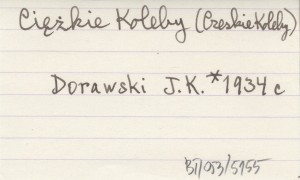 Ciężkie Koleby (Czeskie Koleby)
Dorawski J.K. *1934 c
BT/053/5955